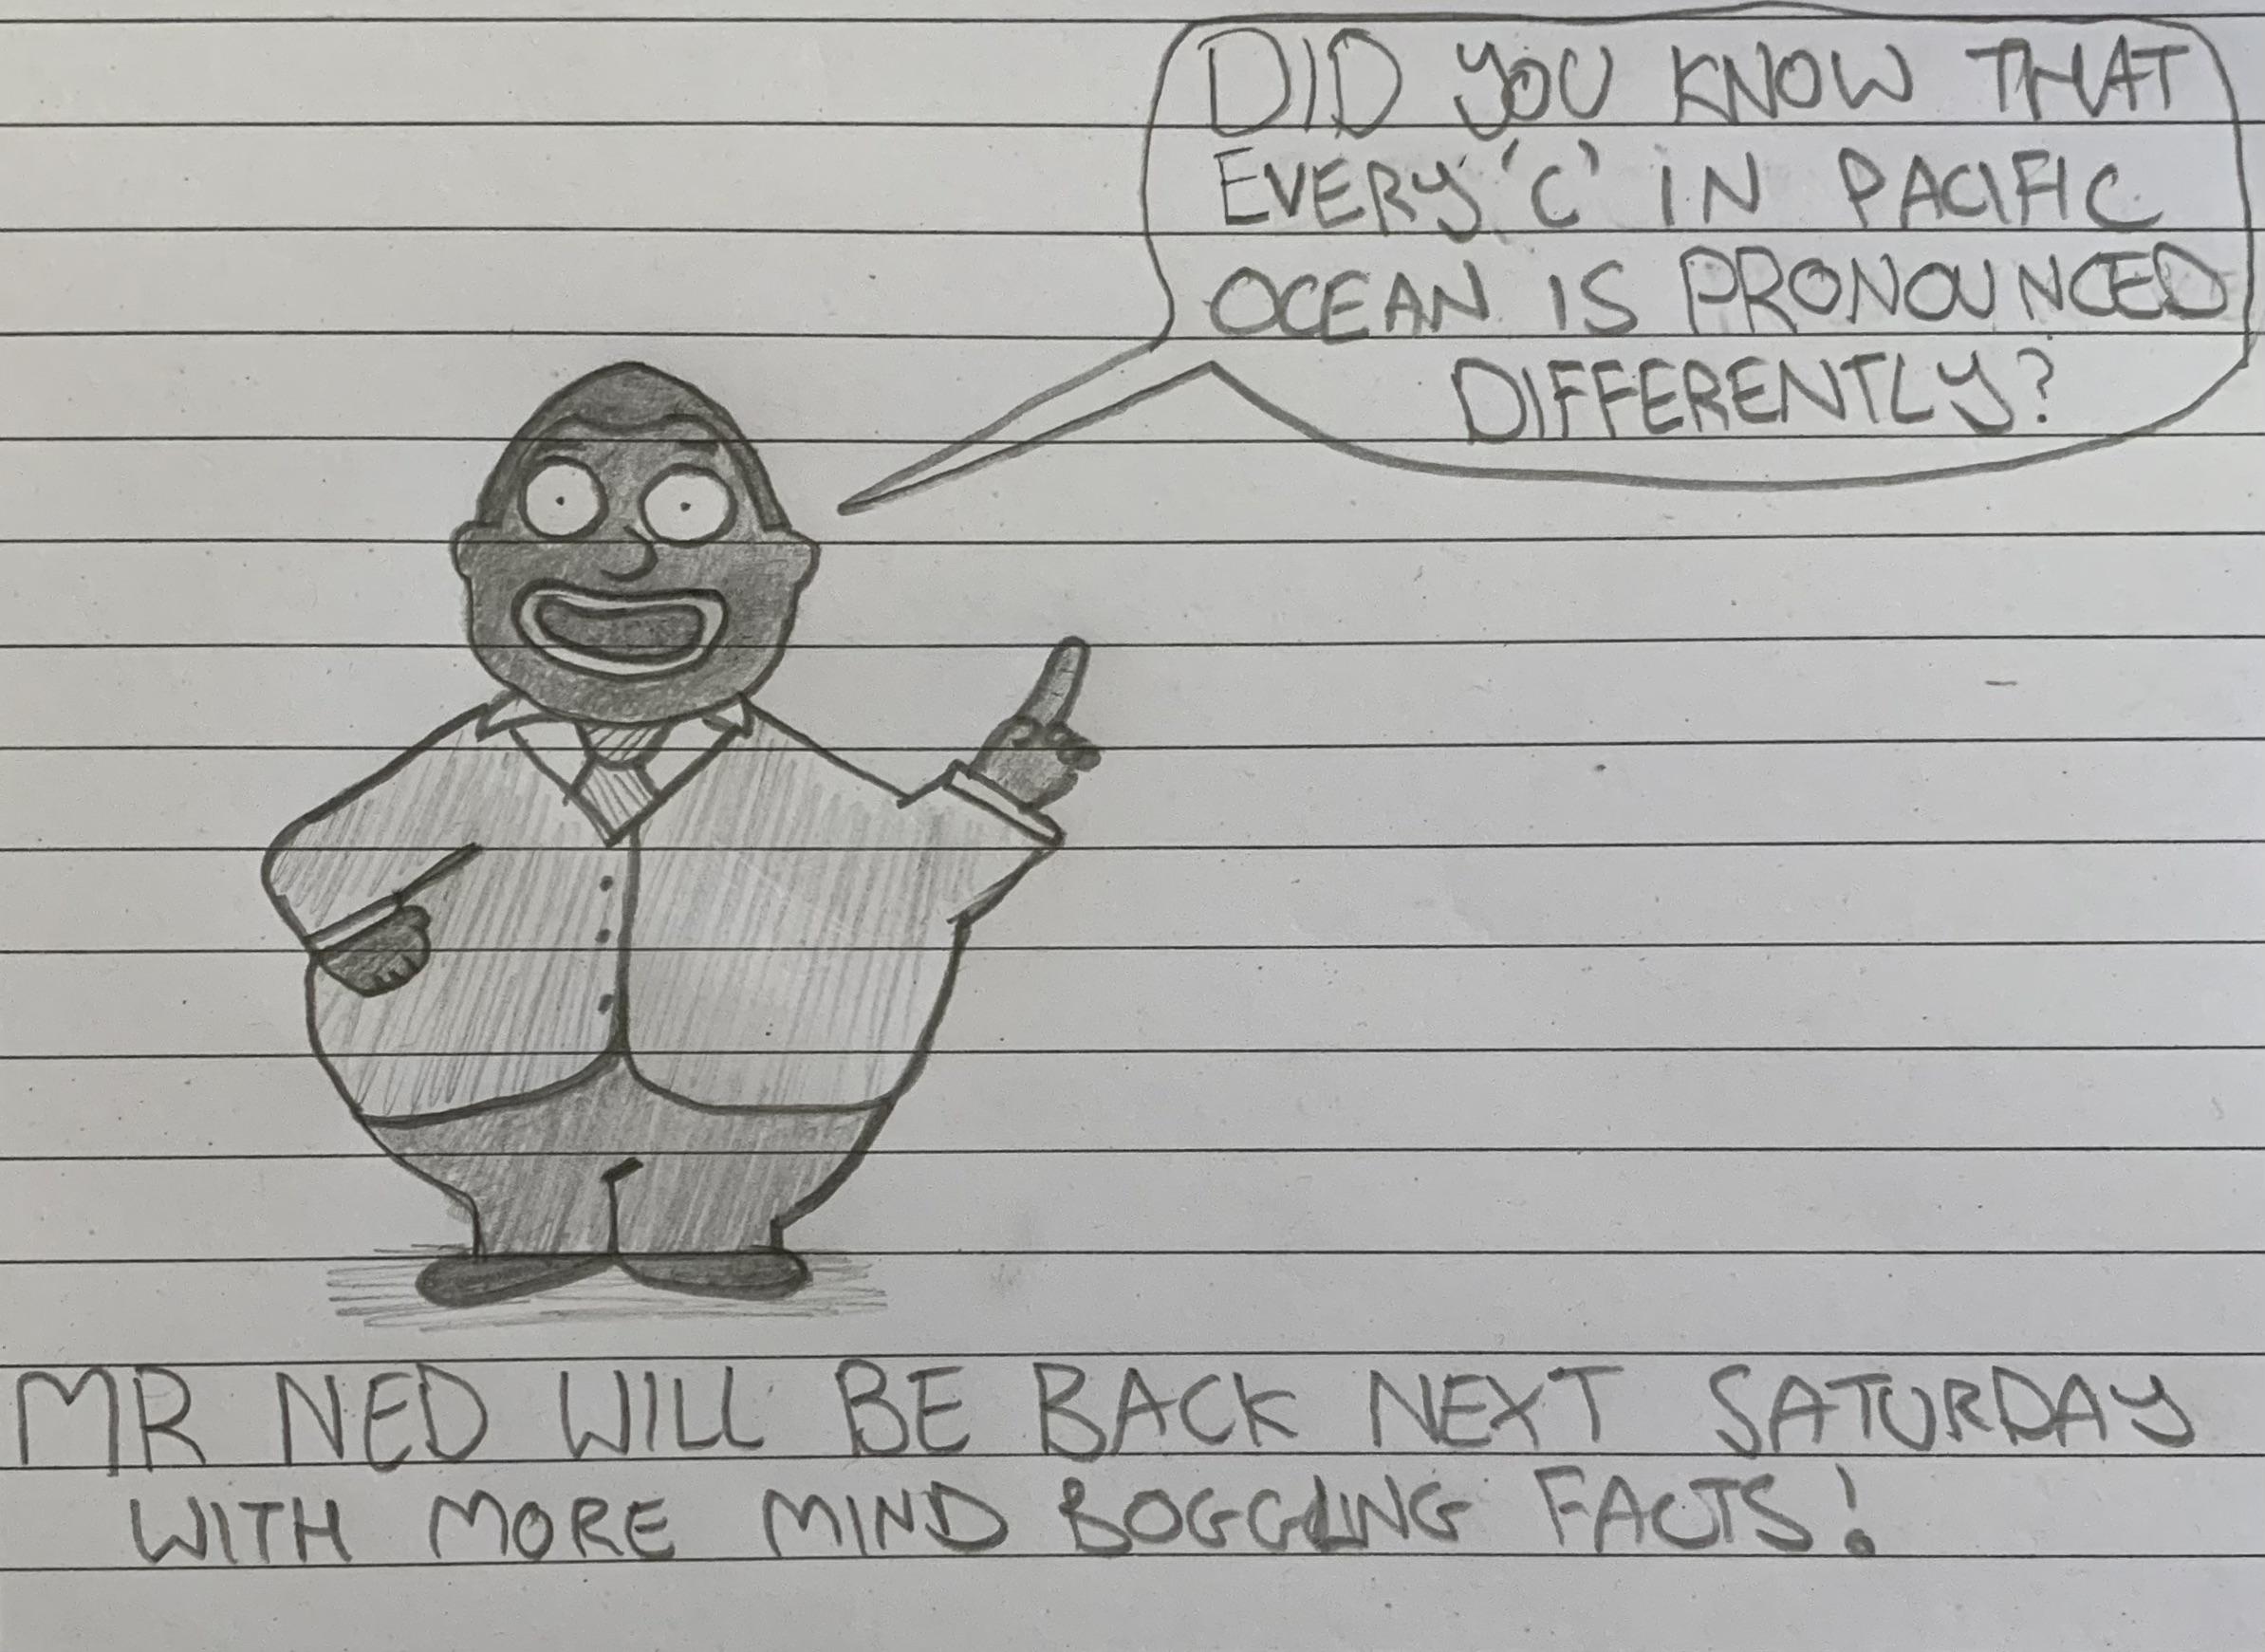 DID YOU KNOW THAT
EVERY 'C' IN PACIFIC
OCEAN IS PRONOUNCED
DIFFERENTLY?
MR NED WILL BE BACK NEXT SATURDAY
WITH MORE MIND BOGGLING FACTS!